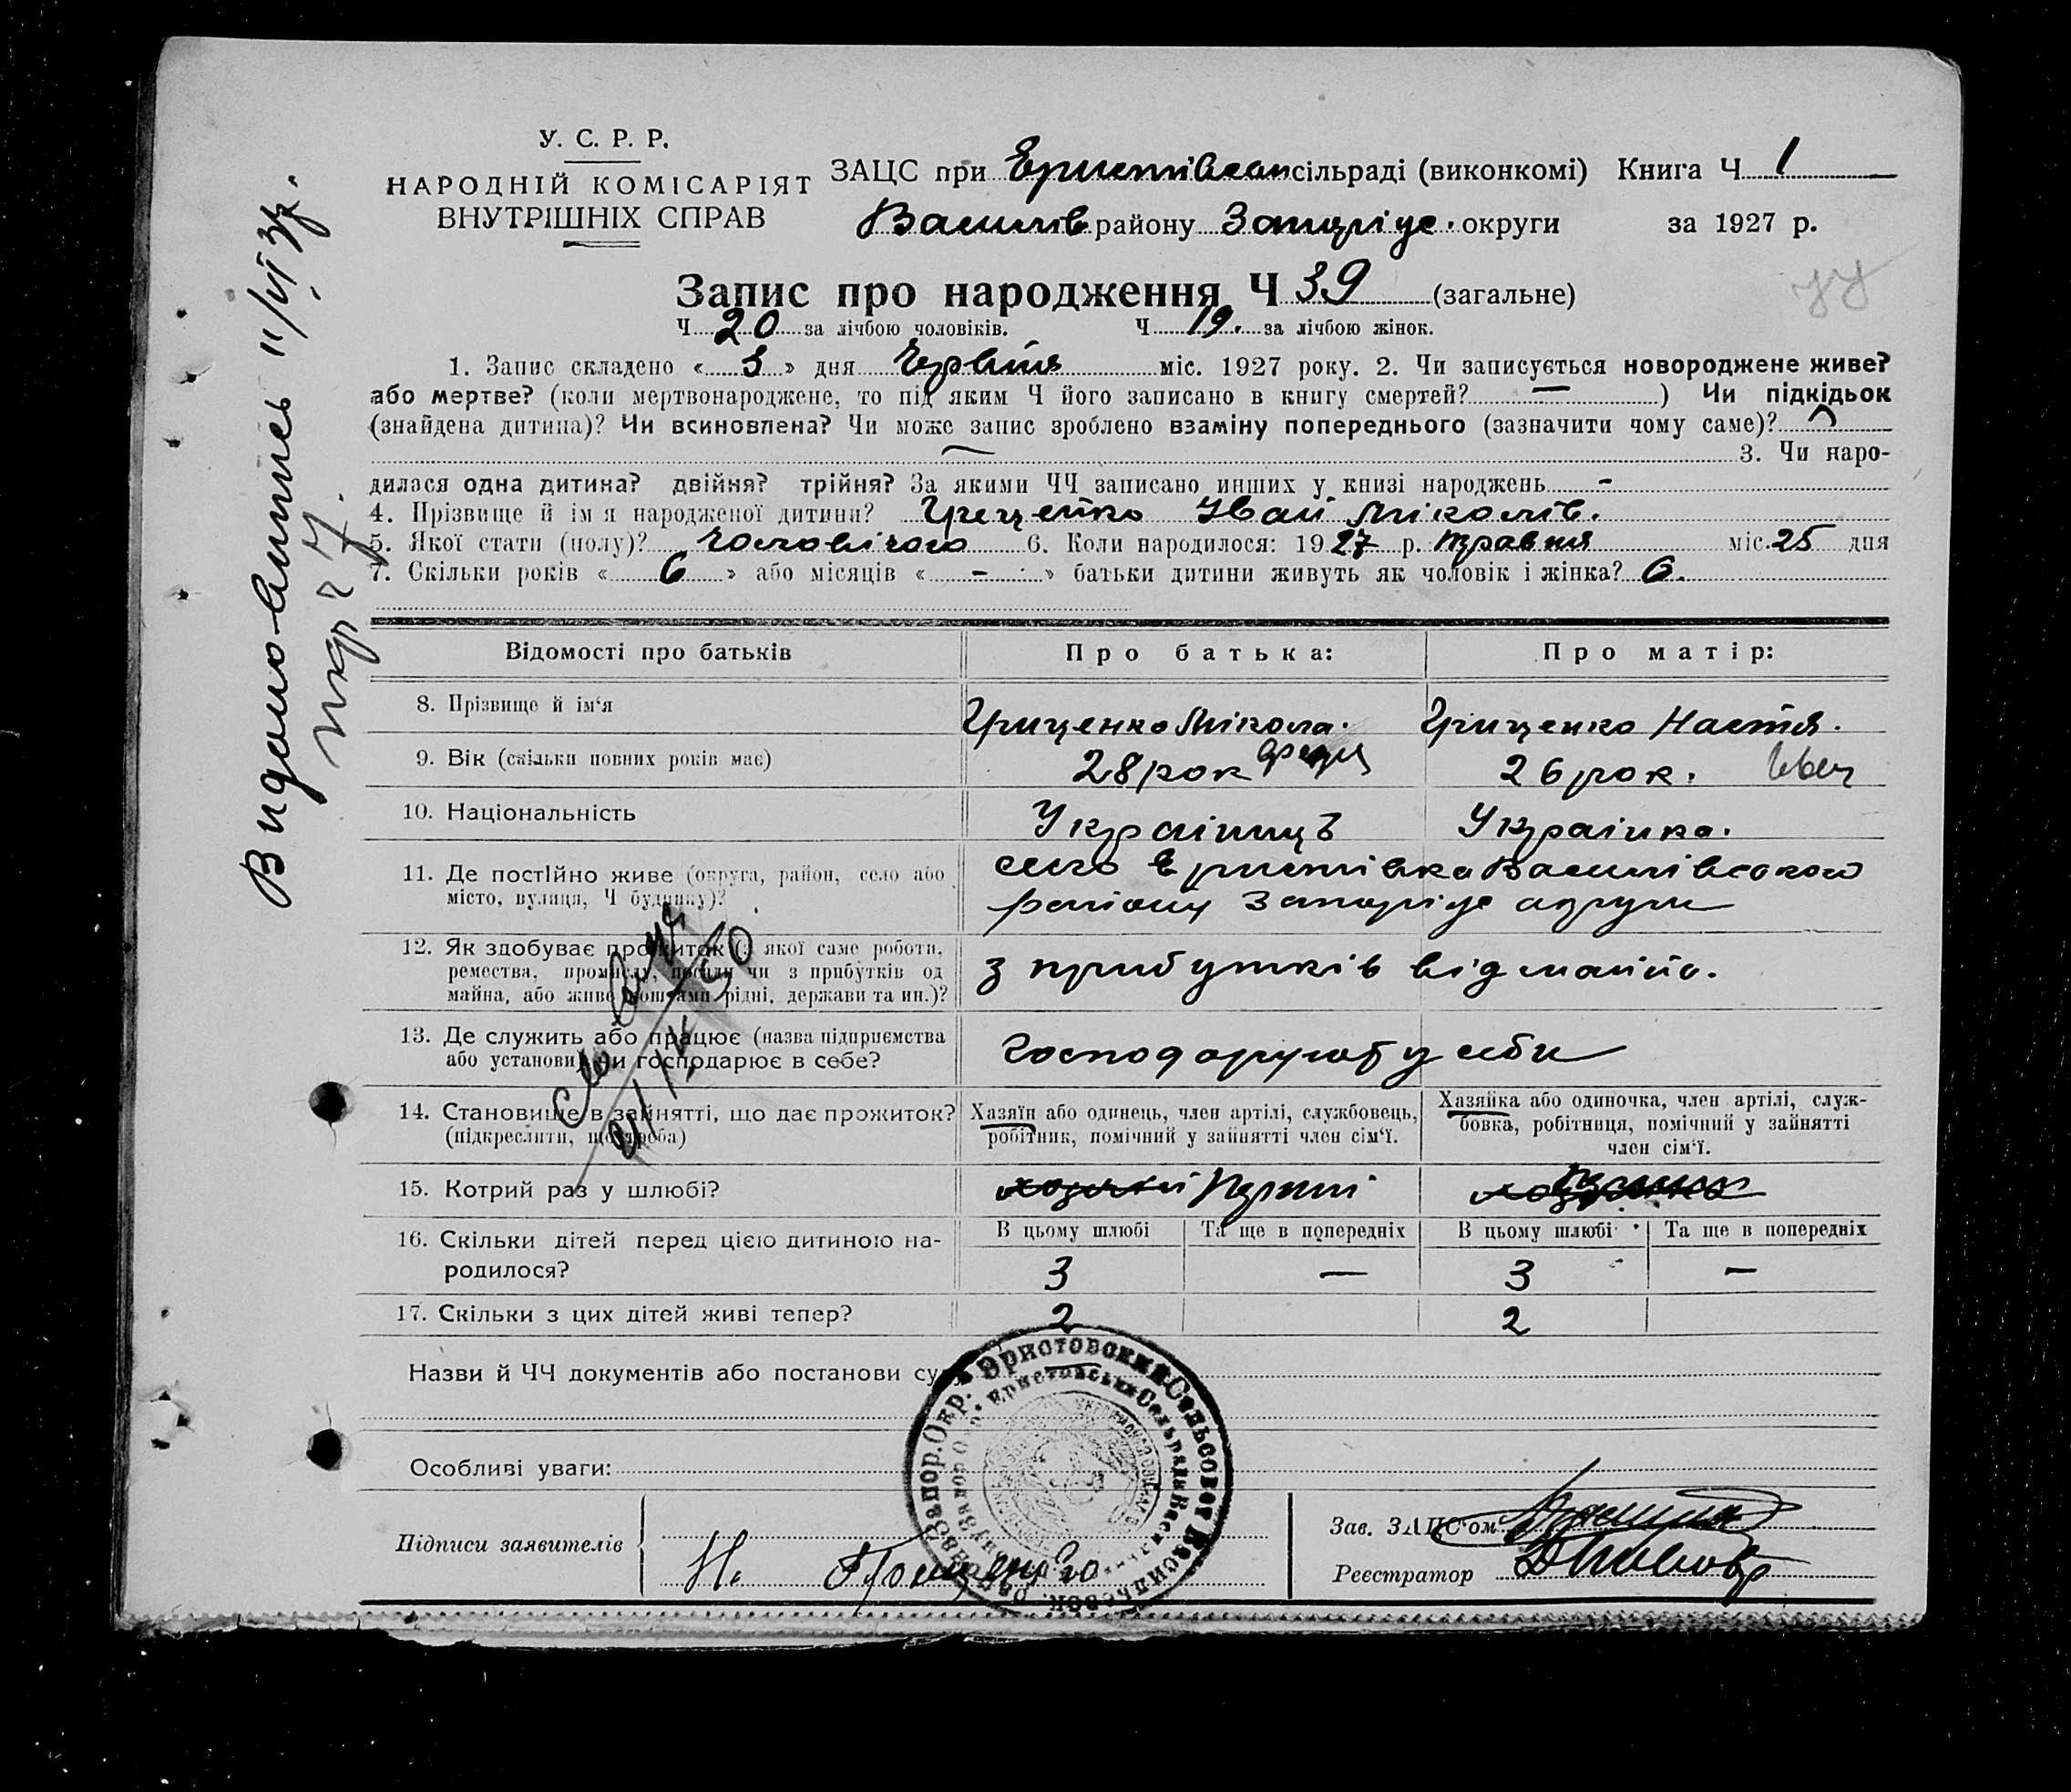 У. С. Р. Р.
НАРОДНІЙ КОМІСАРІЯТ
ВНУТРІШНІХ СПРАВ
ЗАЦС при Еристівскій сільраді (виконкомі) Книга Ч 1
Василів району Запоріце. округи за 1927 р.
Запис про народження Ч 39 (загальне)
Ч 20 за лічбою чоловіків. Ч 19. за лічбою жінок.
1. Запис складено « 3 » дня Червня міс. 1927 року. 2. Чи записується новороджене живе?
або мертве? (коли мертвонароджене, то під яким Ч його записано в книгу смертей? — ) Чи підкідьок
(знайдена дитина)? Чи всиновлена? Чи може запис зроблено взаміну попереднього (зазначити чому саме)?
3. Чи наро-
дилася одна дитина? двійня? трійня? За якими ЧЧ записано инших у книзі народжень -
4. Прізвище й ім я народженої дитини? Гриценко Иван Миколів.
5. Якої стати (полу)? Чоловічого 6. Коли народилося: 19 27 р. травня міс. 25 дня
7. Скільки років « 6 » або місяців « - » батьки дитини живуть як чоловік і жінка? 6.
Відомості про батьків Про батька: Про матір:
8. Прізвище й ім'я Гриценко Мікола. Гриценко Настя.
9. Вік (скільки повних років має) 28 рок 26 рок.
10. Національність Українцъ Українка.
11. Де постійно живе (округа, район, село або
місто, вулиця, Ч будинку)?
село Еристівка Василівського
району Запоріце округи
12. Як здобуває прожиток (з якої саме роботи,
ремества, промислу, посади чи з прибутків од
майна, або живе коштами рідні, держави та ин.)?
з прибутків від майна.
13. Де служить або працює (назва підприємства
або установи) чи господарює в себе?
Господарують у себи
14. Становище в зайнятті, що дає прожиток?
(підкреслити, що треба)
Хазяїн або одинець, член артілі, службовець,
робітник, помічний у зайнятті член сім'ї.
Хазяйка або одиночка, член артілі, служ-
бовка, робітниця, помічний у зайнятті
член сім'ї.
15. Котрий раз у шлюбі? Перший
16. Скільки дітей перед цією дитиною на-
родилося?
В цьому шлюбі Та ще в попередніх В цьому шлюбі Та ще в попередніх
3 — 3 —
17. Скільки з цих дітей живі тепер? 2 2
Назви й ЧЧ документів або постанови
Особливі уваги:
Підписи заявителів
Н. Гриценко
Зав. ЗАЦС'ом
Реєстратор
Эристовский Сельсовет Васильевск. района Запор. Окр.
Видано витись 11/VI 37р.